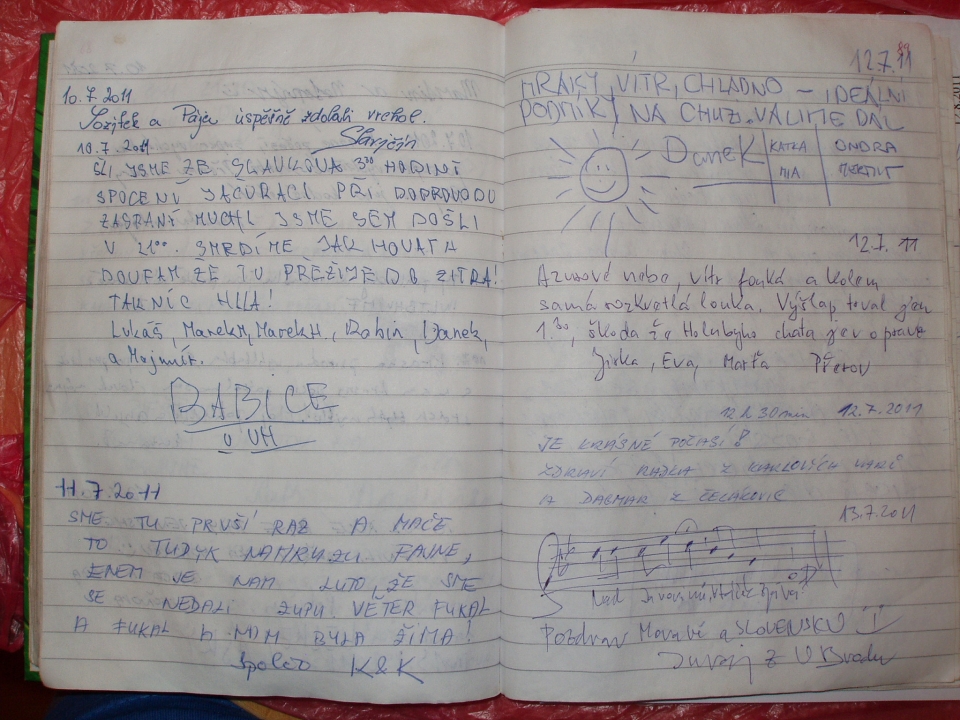 10.7 2011
a Pája úspěšně zdolali vrchol.
Slavičín
10.7.2011
ŠLI JSME ZE SLAVKOVA 3 30 HODINY
SPOCENÍ PŘI DOPROVODU
MUCH JSME SEM DOŠLI
V 21°°. SMRDÍME JAK HOVATA
DOUFAM ŽE TU PŘEŽIJEME DO ZÍTRA!
TAK NIC HLLA!
Lukáš, MarekM, MarekH, Robin, Danek,
a Mojmír.
BABICE
U UH
11.7.2011
SME TU PRVŠÍ RAZ A MAČE
TO TUDYK NAMRUZU FAJNE,
ENEM JE NAM LUTO, ŽE SME
SE NEDALI ZUPU. VĚTER FUKAL
A FUKAL A NAM BYLA ZIMA!
Spolčo K&K
89
12.7.11
MRAKY, VÍTR, CHLADNO – IDEÁLNÍ
PODMÍKY NA CHUZ. VALIME DAL
Danek KATKA ONDRA
MIA
12.7. 11
Azurové nebo, vítr fouká a kolem
samá rozkvetlá louka. Výšlap trval jen
1.30, škoda že Holubyho chata je v opravě
Jirka, Eva, Marťa Přerov
12 h 30 min 12.7.2011
JE KRÁSNÉ POČASÍ!
ZDRAVÍ RADKA Z KARLOVÝCH VARŮ
A DAGMAR Z ČELÁKOVIC
13.7.2011
Nad
Pozdrav Moravě a SLOVENSKU
Juraj z U Brodu